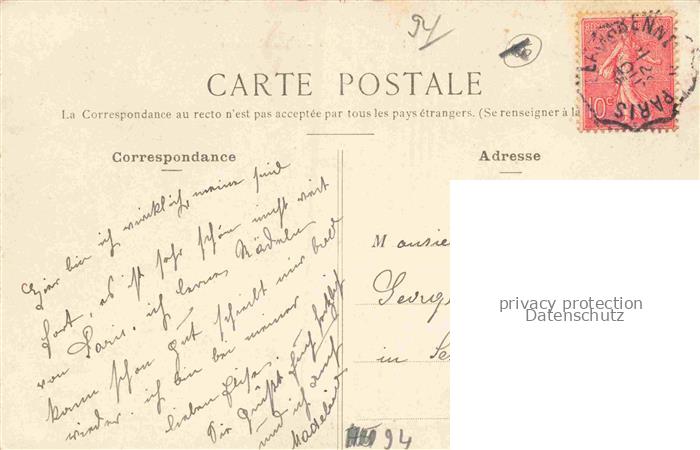 94
CARTE POSTALE
La Correspondance au recto n'est pas acceptée par tous les pays étrangers. (Se renseigner à la
10c
PARIS
Correspondance
Adresse
Hier bin ich wirklich meine sind
fort, es ist sehr schön nicht weit
von Paris. ich lerne Rädeln
kann schon gut schreibt mir bald
wieder. ich bin bei meiner
lieben Elisa.
Die grüßt Euch
und ich auch
Madeleine
Monsieu
Georg
in Se
94
privacy protection
Datenschutz